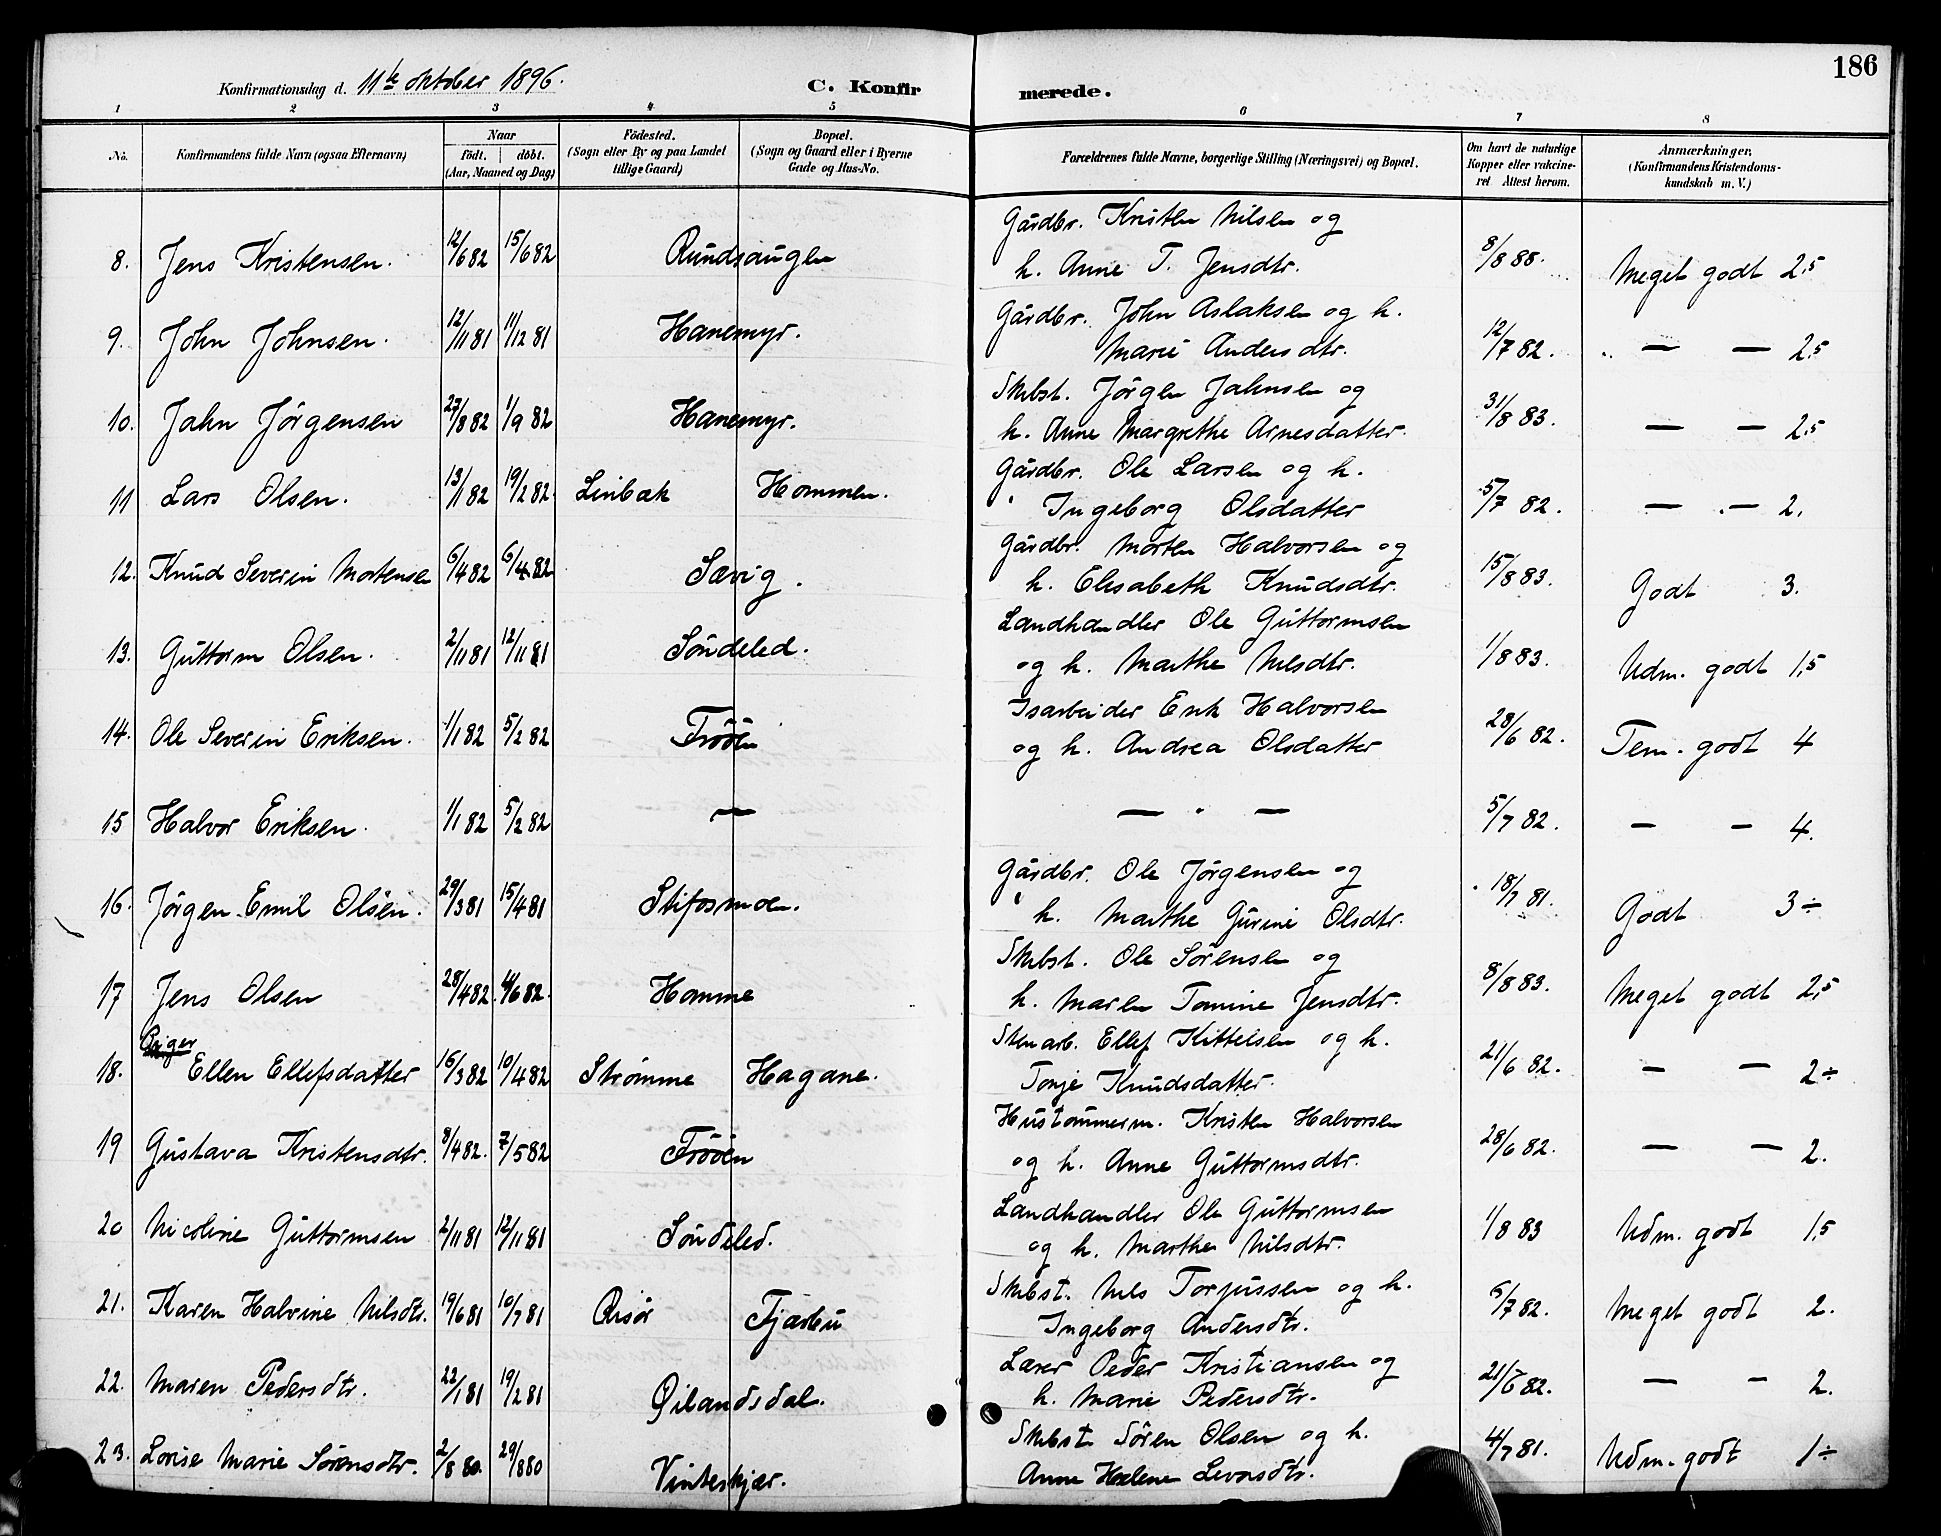 186
Konfirmationsdag d. 11te oktober 1896.
C. Konfirmerede.
1 2 3 4 5 6 7 8
No. Konfirmandens fulde Navn (ogsaa Efternavn) Naar födt. döbt. (Aar, Maaned og Dag) Födested. (Sogn eller By og paa Landet tillige Gaard) Bopæl. (Sogn og Gaard eller i Byerne Gade og Hus-No. Forældrenes fulde Navne, borgerlige Stilling (Næringsvei) og Bopæl. Om havt de naturlige Kopper eller vakcineret Attest herom. Anmærkninger, (Konfirmandens Kristendomskundskab m. V.)
Gårdbr. Kristen Nilsen og
8. Jens Kristensen. 12/6 82 15/6 82 Rundsaugen h. Anne T. Jensdtr. 8/8 88. Meget godt 2,5
Gårdbr. John Aslaksen og h.
9. John Johnsen. 12/11 81 11/12 81 Hanemyr. Marie Andersdtr. 12/7 82. — — 2,5
Skbst. Jörgen Jahnsen og
10. Jahn Jörgensen 27/8 82 1/9 82 Hanemyr. h. Anne Margrethe Arnesdatter. 31/8 83. — — 2,5
Gårdbr. Ole Larsen og h.
11 Lars Olsen. 13/1 82 19/2 82. Linbæk Hommen. Ingeborg Olsdatter 5/7 82. — — 2.
Gårdbr. Morten Halvorsen og
12. Knud Severin Mortensen 6/4 82 6/4 82 Sævig. h. Elisabeth Knudsdtr. 15/8 83. Godt 3.
Landhandler Ole Guttormsen
13. Guttorm Olsen. 2/11 81 12/11 81 Söndeled. og h. Marthe Nilsdtr. 1/8 83. Udm. godt 1,5
Isarbeider Erik Halvorsen
14. Ole Severin Eriksen. 1/1 82 5/2 82 Tröön og h. Andrea Olsdatter 28/6 82. Tem. godt 4
15 Halvor Eriksen. 1/1 82 5/2 82 — — " — 5/7 82. — — 4.
Gårdbr. Ole Jörgensen og
16. Jörgen Emil Olsen. 29/3 81 15/4 81 Stifosmoen. h. Marthe Gurine Olsdtr. 18/7 81. Godt 3÷
Skbst. Ole Sörensen og
17 Jens Olsen 28/4 82. 4/6 82. Homme h. Maren Tomine Jensdtr. 8/8 83. Meget godt 2,5
Piger Stenarb. Ellef Kittelsen og h.
18. Ellen Ellefsdatter 16/3 82 10/4 82 Strømme Hagane. Tonje Knudsdatter. 21/6 82. — — 2÷
Hustömmerm. Kristen Halvorsen
19 Gustava Kristensdtr. 8/4 82. 7/5 82 Tröön og h. Anne Guttormsdtr. 28/6 82. — — 2.
Landhandler Ole Guttormsen
20 Nicoline Guttormsen 2/11 81 12/11 81 Söndeled. og h. Marthe Nilsdtr. 1/8 83 Udm. godt 1,5
Skbst. Nils Torjussen og h.
21. Karen Halvine Nilsdtr. 19/6 81 10/7 81 Risör Fjærbu Ingeborg Andersdtr. 6/7 82. Meget godt 2.
Lærer Peder Kristiansen og
22. Maren Pedersdtr. 22/1 81 19/2 81 Øilandsdal. h. Marie Pedersdtr. 21/6 82. — — 2.
Skbst Sören Olsen og h.
23. Lovise Marie Sörensdtr. 2/8 80. 29/8 80 Vinterkjær. Anne Helene Levorsdtr. 4/7 81. Udm. godt 1÷